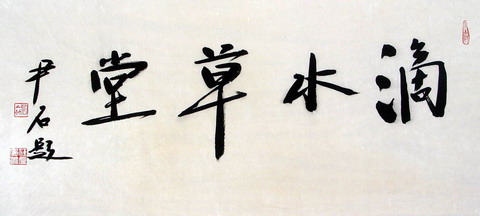 滴水草堂
尹石题